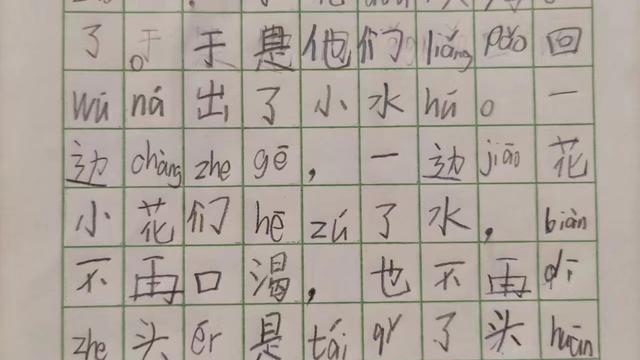 了。于是他们liǎng pǎo回
wū ná出了小水hú。一
边chàng zhe gē，一边jiāo花
小花们hē zú了水，biàn
不再口渴，也不再dī
zhe头ér是tái qǐ了头huān